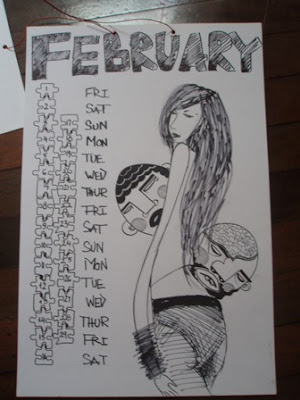 FEBRUARY
FRI
SAT
SUN
MON
TUE
WED
THUR
FRI
SAT
SUN
MON
TUE
WED
THUR
FRI
SAT